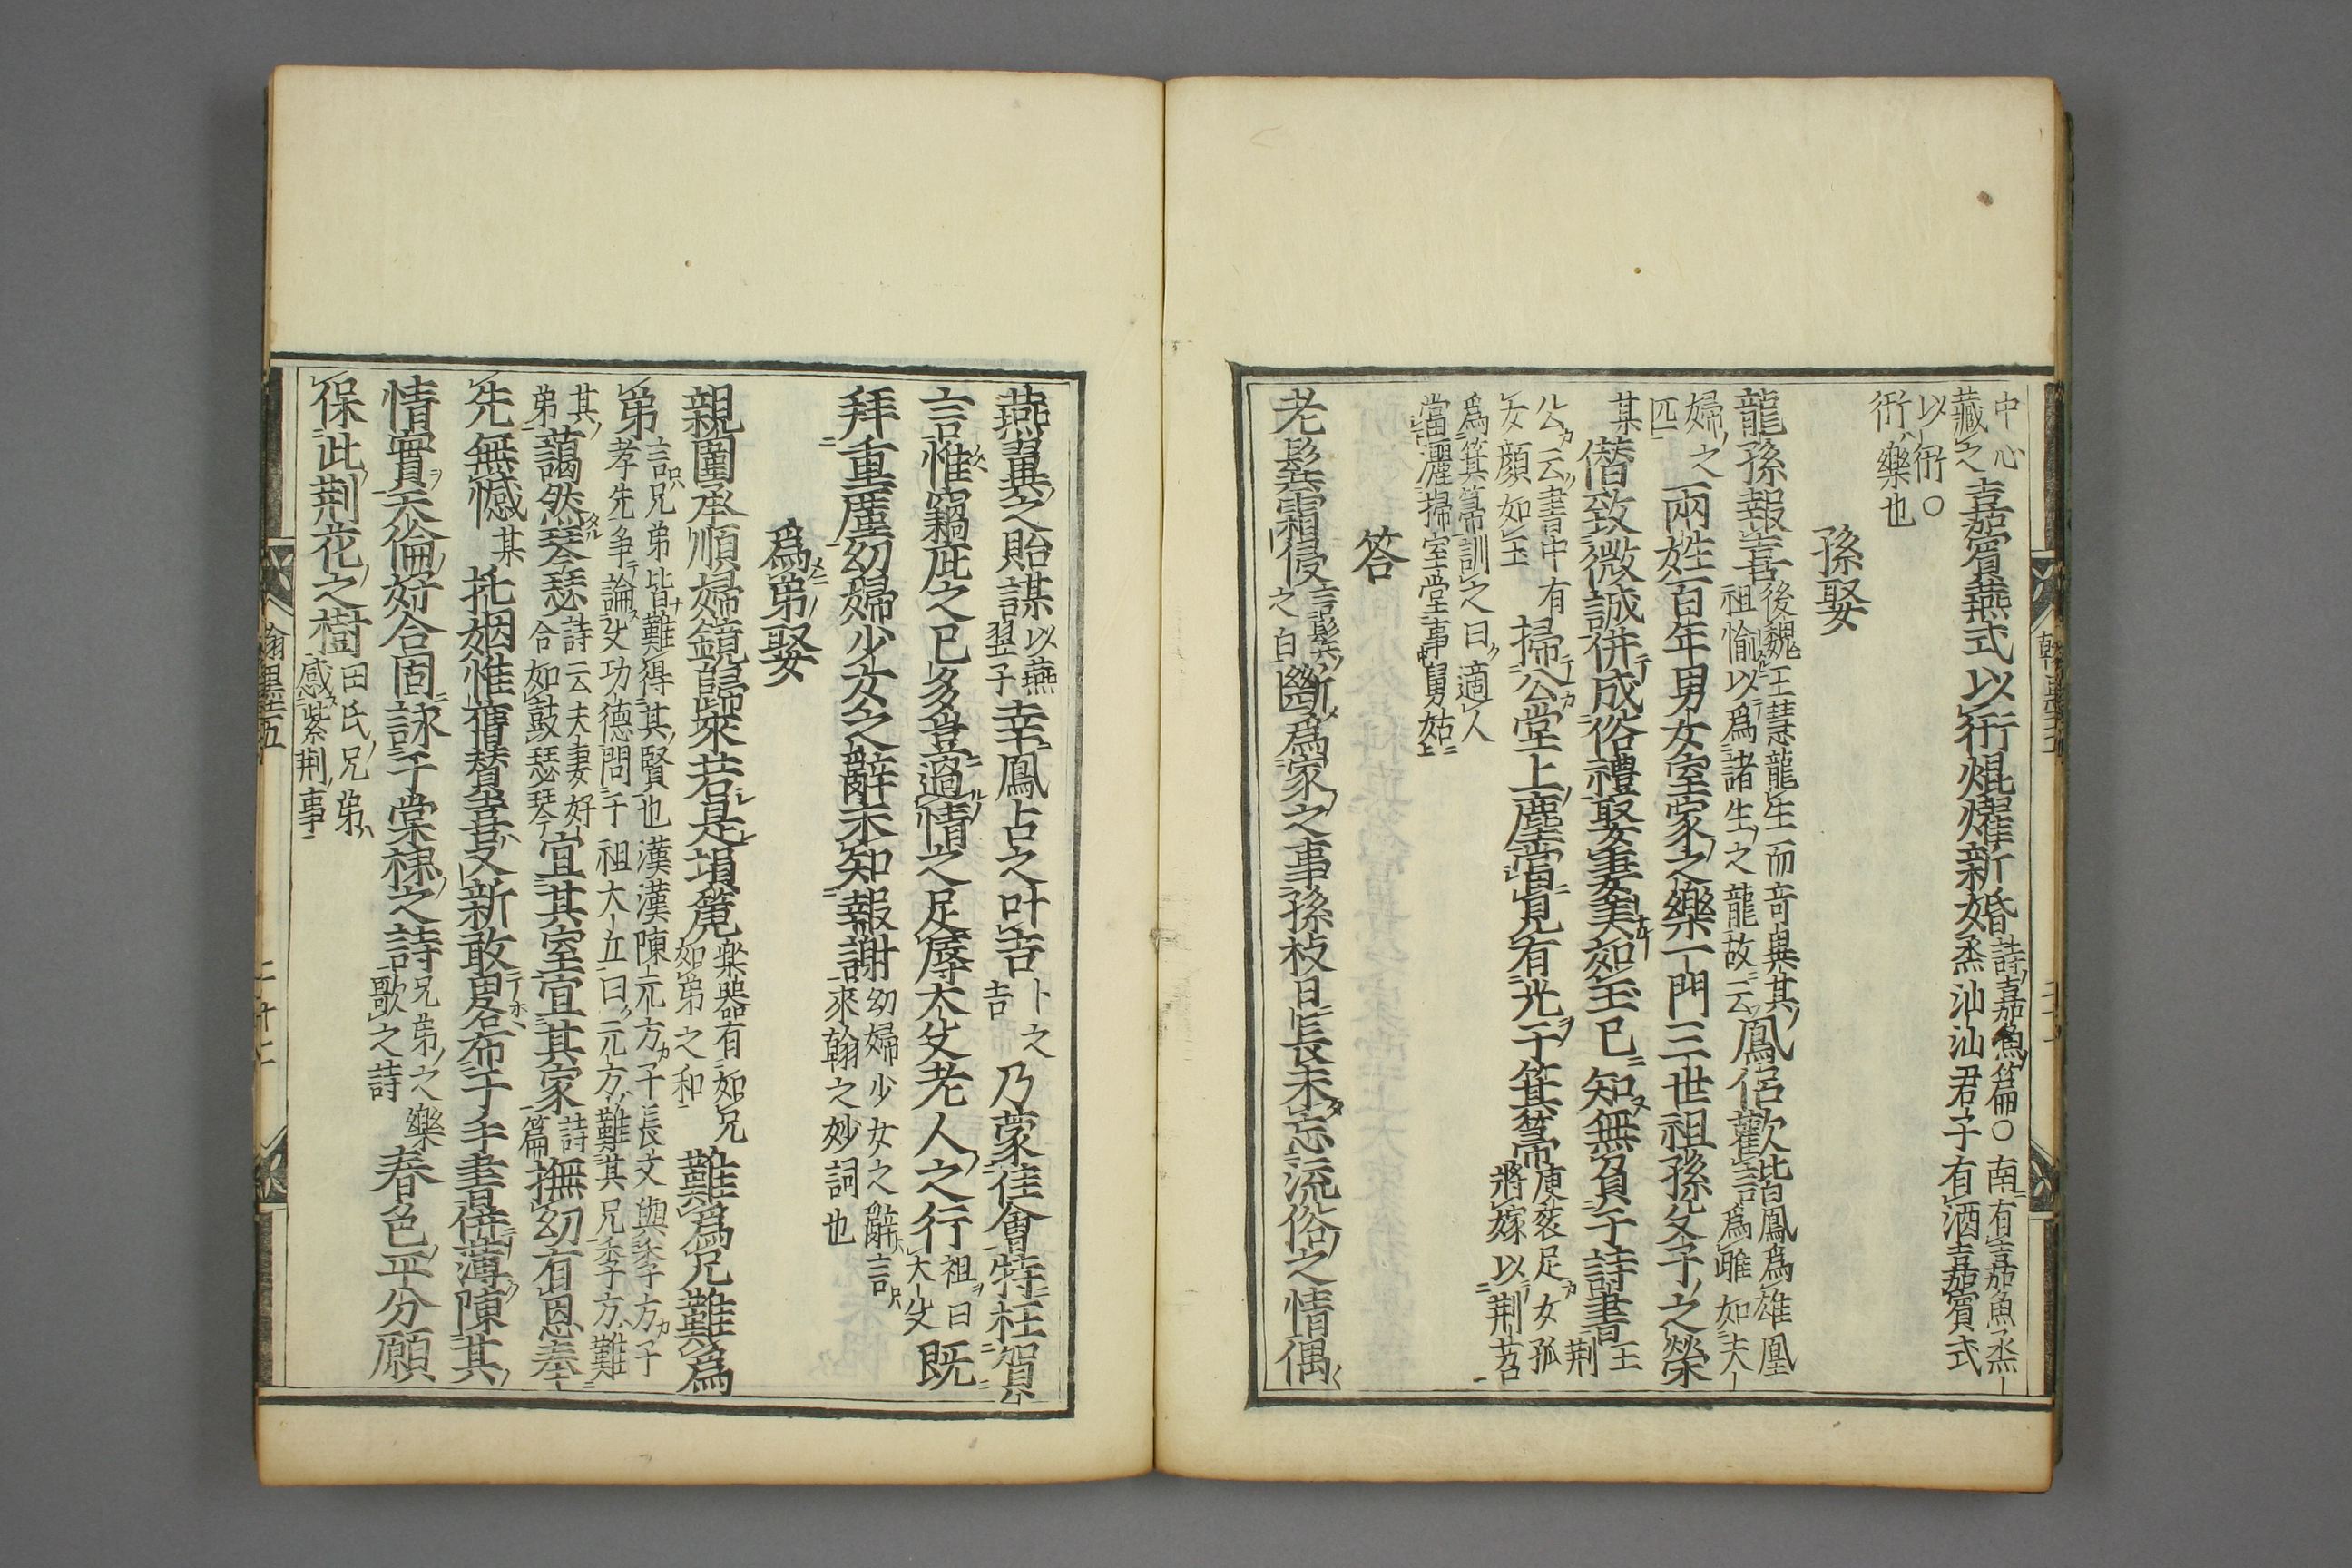 中心藏之嘉賓燕式以衎焜燿新婚詩嘉魚篇○南有嘉魚烝汕汕君子有酒嘉賓式
以衎○衎樂也
孫娶
龍孫報喜後魏王慧龍生而奇異其祖愉以爲諸生之龍故云鳳侶歡諧鳳爲雄凰爲雌如夫
婦之匹兩姓百年男女室家之樂一門三世祖孫父子之榮
某僭致微誠併成俗禮娶妻美如玉已知無負于詩書王荆
公云書中有女顔如玉掃公堂上塵當見有光于箕箒庾衮足女孤將嫁以荆苕
爲箕箒訓之曰適人當灑掃室堂事舅姑
答
老鬂霜侵言鬂之白斷爲家之事孫枝日長未忘流俗之情偶
燕翼之貽謀以燕翌子幸鳳占之叶吉卜之吉乃蒙佳會特枉賀
言惟竊庇之已多豈適情之足辱大父老人之行祖曰大父既
拜重塵幼婦少女之辭未知報謝幼婦少女之辭言來翰之妙詞也
爲弟娶
親闈承順婦鏡歸來若是塤箎樂器有如兄如弟之和難爲兄難爲
弟言兄弟皆難得其賢也漢漢陳元方子長文與季方子孝先爭論父功德問于祖大丘曰元方難其兄季方難
其弟藹然琴瑟詩云夫妻好合如鼓瑟琴宜其室宜其家詩篇撫幼有恩奉
先無憾某托姻惟舊賛喜又新敢畧布于手書併薄陳其
情實天倫好合固詠于棠棣之詩兄弟之樂歌之詩春色平分願
保此荆花之樹田氏兄弟感紫荆事
翰墨五
二十二